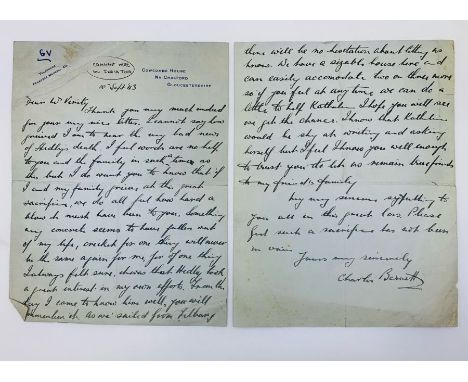 GV
COWCOMBE HOUSE
NR CHALFORD
GLOUCESTERSHIRE
10 Sept '43
Dear Mr Verity
Thank you very much indeed
for your very nice letter. I cannot say how
grieved I am to hear the very bad news
of Hedley's death. I feel words are no help
to you and the family in such times as
this but I do want you to know that if
I and my family grieve at the great
sacrifice, we do all feel how hard a
blow it must have been to you. Something
very concrete seems to have fallen out
of my life, cricket for one thing will never
be the same again for me, for if one thing
I always felt sure, it was that Hedley took
a great interest in my own efforts. From the
day I came to know him well, you will
remember it. As we sailed from Tilbury
there will be no hesitation about letting us
know. We have a sizable house here and
can easily accomodate two or three more
so if you feel at any time we can do a
little to help Kathleen I hope you will see
we get the chance. I know that Kathleen
would be shy at writing and asking
herself but I feel I know you well enough
to trust you to let us remain true friends
to my friend's family
My very sincere sympathy to
you all in this great loss. Please
God such a sacrifice has not been
in vain
Yours very sincerely
Charles Barnett